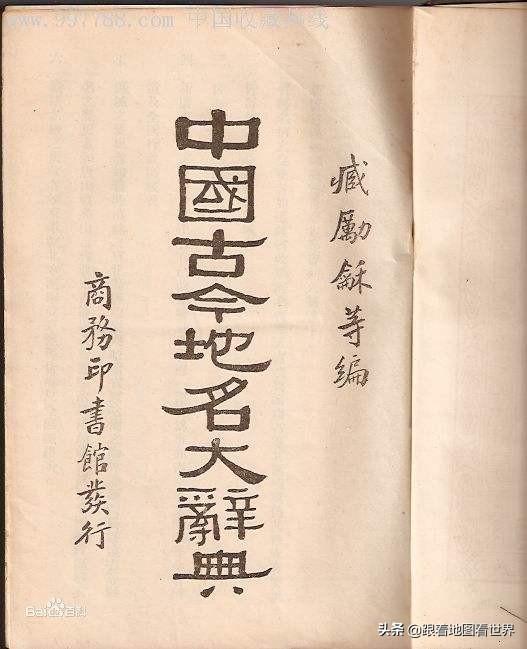 www.997788.com 中国收藏热线
臧勵龢等編
中國古今地名大辭典
商務印書館發行
Baidu百科
头条 @跟着地图看世界